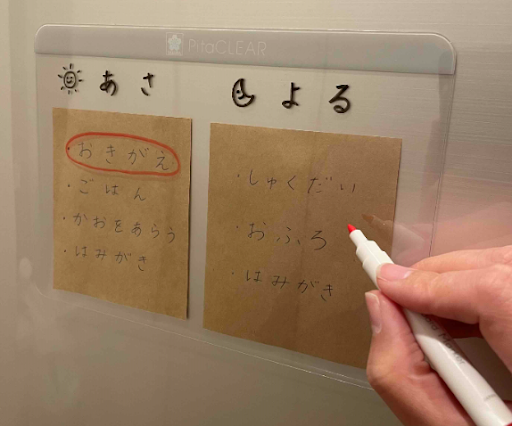 PitaCLEAR
あさ
・おきがえ
・ごはん
・かおをあらう
・はみがき
よる
・しゅくだい
・おふろ
・はみがき